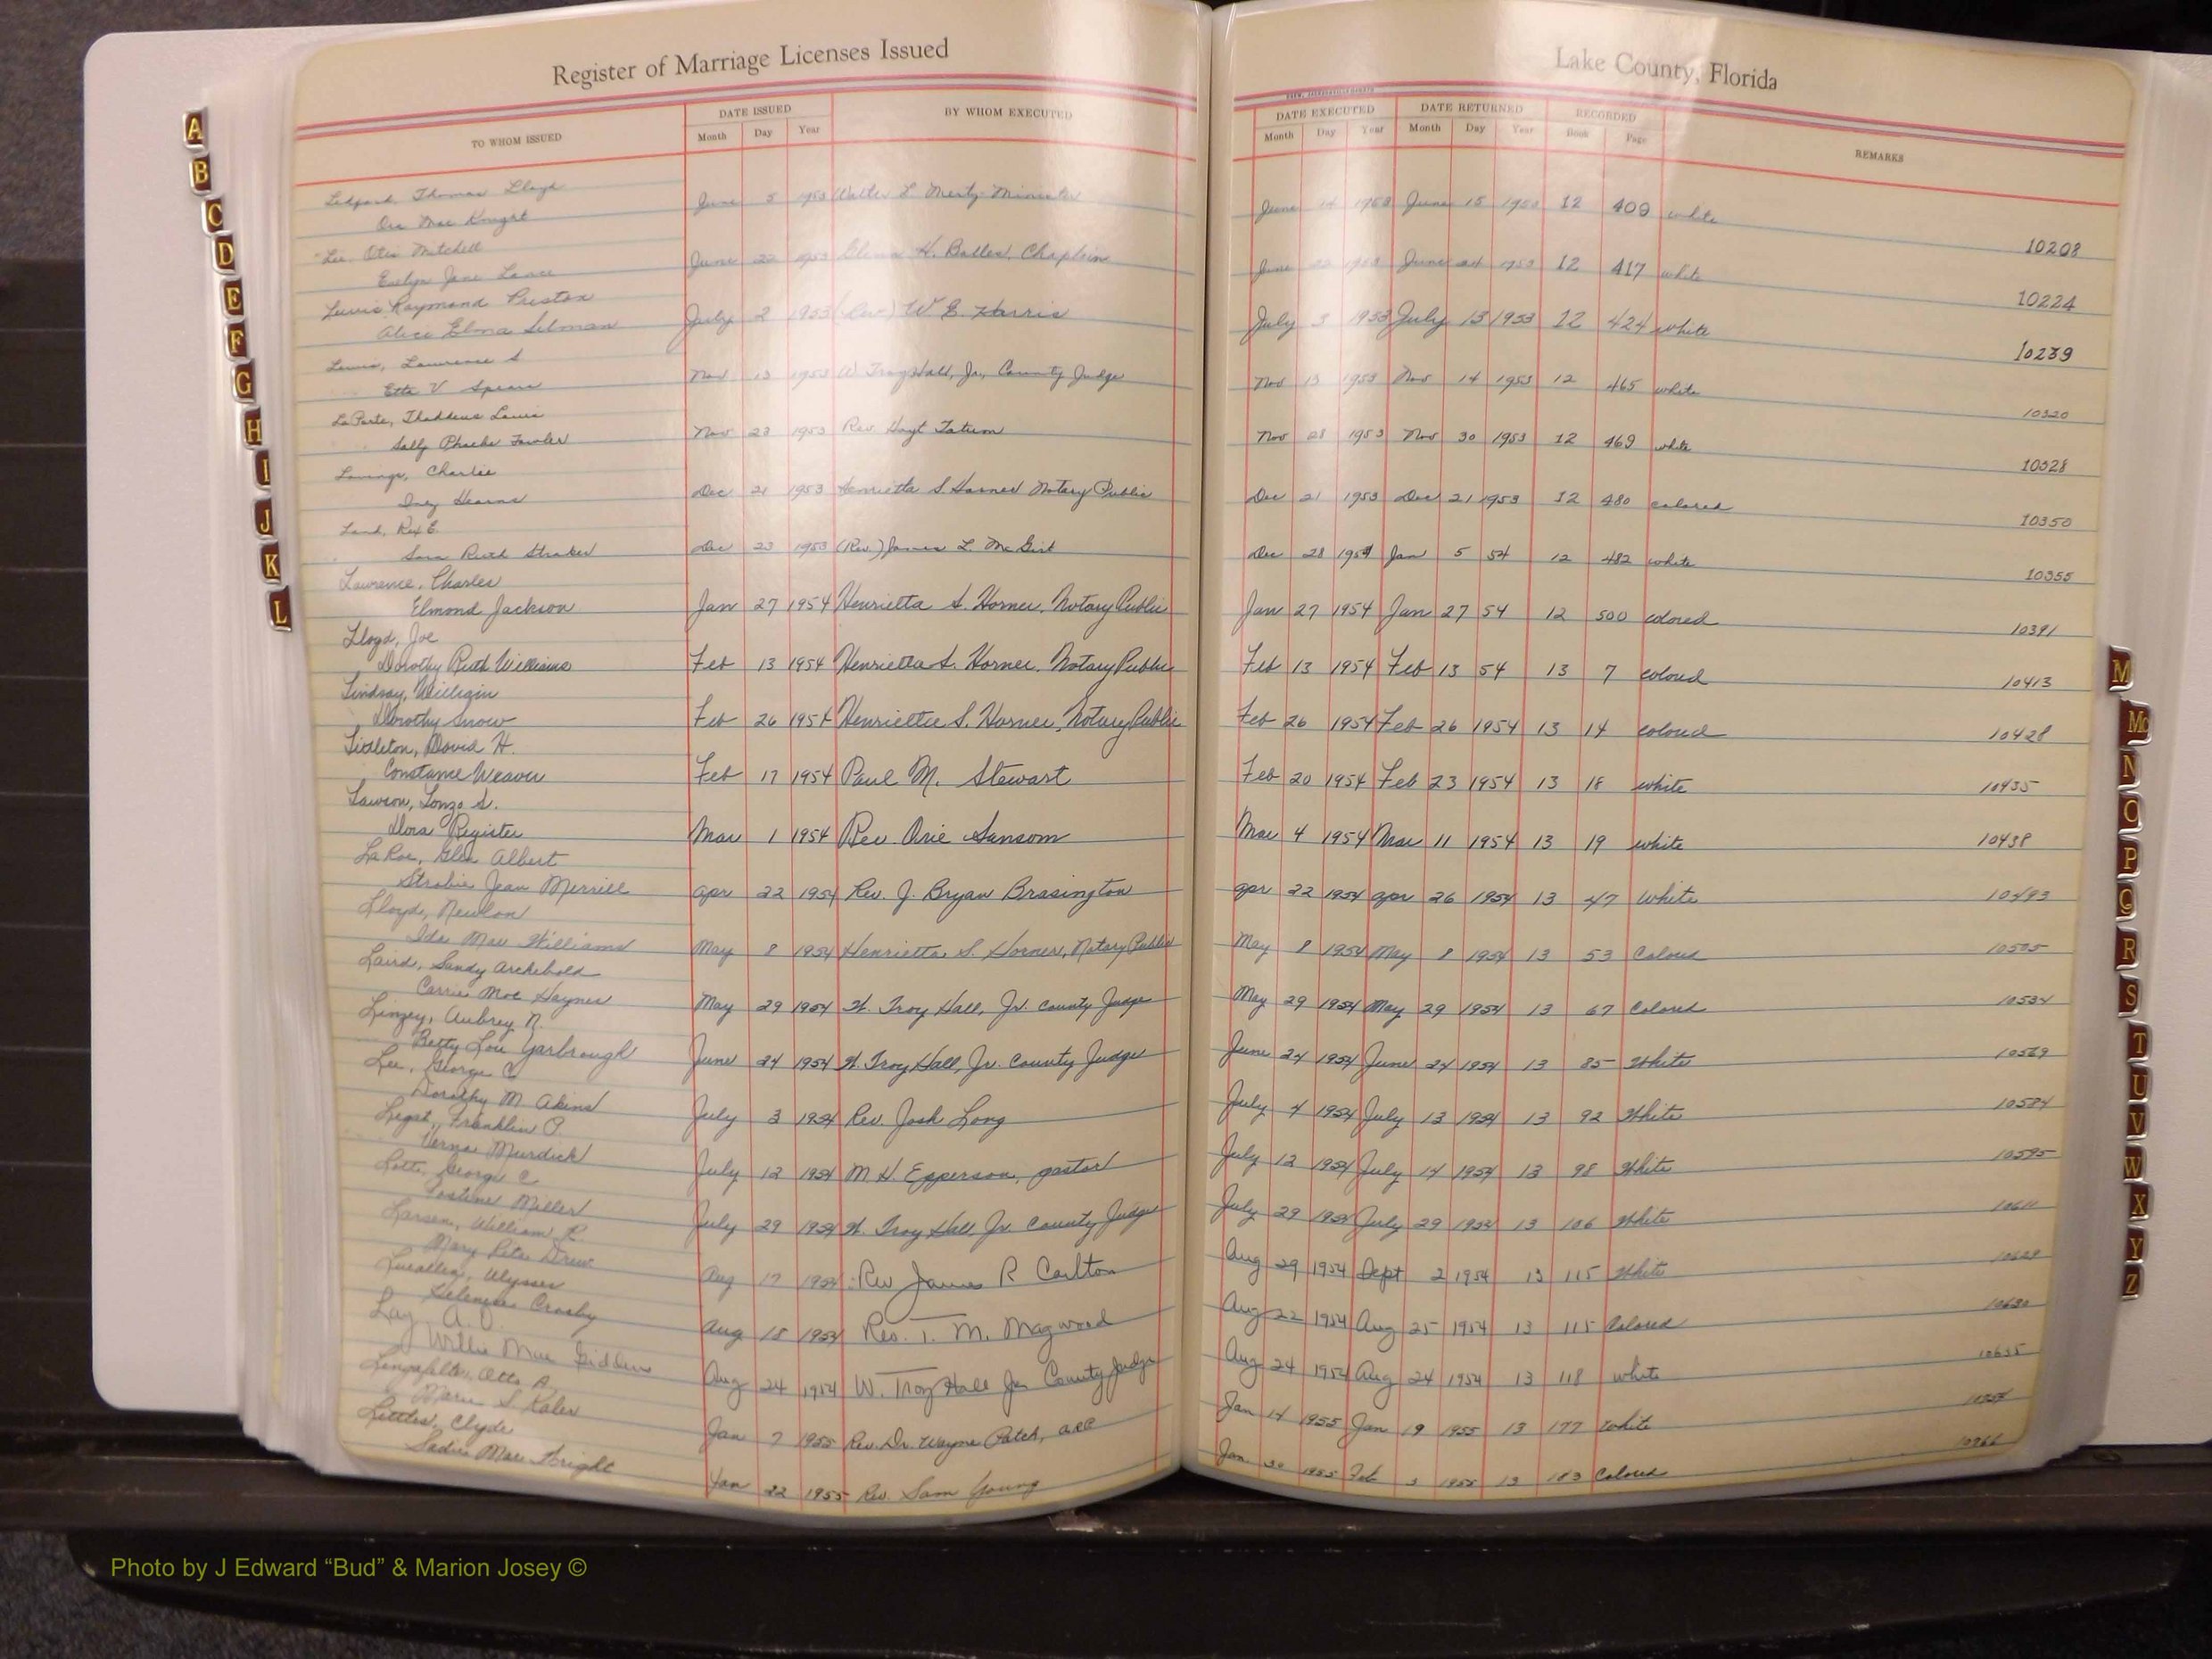 Register of Marriage Licenses Issued
Lake County, Florida
TO WHOM ISSUED DATE ISSUED BY WHOM EXECUTED DATE EXECUTED DATE RETURNED RECORDED REMARKS
Month Day Year Month Day Year Month Day Year Book Page
Thomas Lloyd
Ora Mae Knight June 5 1953 Walter L Minister June 14 1953 June 15 1953 12 409 white 10208
Lee Otis Mitchell
Evelyn Jane Lance June 22 1953 H. Chaplain June 22 1953 June 24 1953 12 417 white 10224
Lewis Raymond Preston
Alice Elma Selman July 2 1953 (Rev) W E Harris July 3 1953 July 13 1953 12 424 white 10239
Lewis, Lawrence S
Etta V Spears Nov 13 1953 W. Troy Hall, Jr., County Judge Nov 13 1953 Nov 14 1953 12 465 white 10320
LaPorte, Thaddeus Louis
Sally Phoebe Fowler Nov 23 1953 Rev. Hoyt Tatum Nov 28 1953 Nov 30 1953 12 469 white 10328
Charlie
Inez Hearns Dec 21 1953 Henrietta S Horner Notary Public Dec 21 1953 Dec 21 1953 12 480 colored 10350
Land, Rex E.
Sara Ruth Straker Dec 23 1953 (Rev.) James L. McGirt Dec 28 1954 Jan 5 54 12 482 white 10355
Lawrence, Charles
Elmond Jackson Jan 27 1954 Henrietta S. Horner, Notary Public Jan 27 1954 Jan 27 54 12 500 colored 10391
Lloyd, Joe
Dorothy Ruth Williams Feb 13 1954 Henrietta S. Horner, Notary Public Feb 13 1954 Feb 13 54 13 7 colored 10413
Lindsay, William
Dorothy Snow Feb 26 1954 Henrietta S. Horner, Notary Public Feb 26 1954 Feb 26 1954 13 14 colored 10428
Littleton, David H.
Constance Weaver Feb 17 1954 Paul M. Stewart Feb 20 1954 Feb 23 1954 13 18 white 10435
Lawson, Lonzo S.
Dora Register Mar 1 1954 Rev. Orie Sansom Mar 4 1954 Mar 11 1954 13 19 white 10438
LaRoe, Glen Albert
Strobie Jean Merrill Apr 22 1954 Rev. J. Bryan Brasington Apr 22 1954 Apr 26 1954 13 47 White 10493
Lloyd, Newlon
Ida Mae Williams May 8 1954 Henrietta S. Horner, Notary Public May 8 1954 May 8 1954 13 53 Colored 10505
Laird, Sandy Archibold
Carrie Mae Haynes May 29 1954 W. Troy Hall, Jr. County Judge May 29 1954 May 29 1954 13 67 Colored 10534
Linzey, Aubrey N.
Betty Lou Yarbrough June 24 1954 W. Troy Hall, Jr. County Judge June 24 1954 June 24 1954 13 85 White 10569
Lee, George C
Dorothy M Akins July 3 1954 Rev. Josh Long July 4 1954 July 13 1954 13 92 White 10584
Franklin O.
Verna Murdick July 12 1954 M. H. Epperson, pastor July 12 1954 July 14 1954 13 98 White 10595
George C
Miller July 29 1954 W. Troy Hall Jr. County Judge July 29 1954 July 29 1954 13 106 White 10611
Larsen, William R
Mary Rita Drew Aug 17 1954 Rev James R Carlton Aug 29 1954 Sept 2 1954 13 115 White
Ulysses
Crosby Aug 18 1954 Rev. T. M. Magwood Aug 22 1954 Aug 25 1954 13 115 Colored 10630
Lay A. O.
Willie Mae Giddens Aug 24 1954 W. Troy Hall Jr County Judge Aug 24 1954 Aug 24 1954 13 118 white 10635
Otto A.
Marie S Kaler Jan 7 1955 Rev. Dr. Wayne Patch, Jan 14 1955 Jan 19 1955 13 177 white
Littles, Clyde
Sadie Mae Wright Jan 22 1955 Rev. Sam Young Jan 30 1955 Feb 3 1955 13 183 Colored
A
B
C
D
E
F
G
H
I
J
K
L
M
Mc
N
O
P
Q
R
S
T
U
V
W
X
Y
Z
Photo by J Edward “Bud” & Marion Josey ©